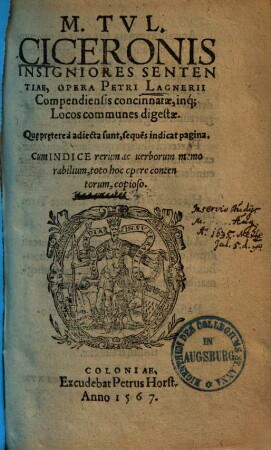 M. TVL.
CICERONIS
INSIGNIORES SENTEN
TIAE, OPERA PETRI LAGNERII
Compendiensis concinnatæ, inq;
Locos communes digestæ.
Quę pręterea adiecta sunt, sequēs indicat pagina.
Cum INDICE rerum ac uerborum memo
rabilium, toto hoc opere conten
torum, copioso.
Inservio Studijs
M.
Aº. 1695.
Jul. 5. d.
COLONIAE,
Excudebat Petrus Horst.
Anno 1567.
IN
AUGSBURG